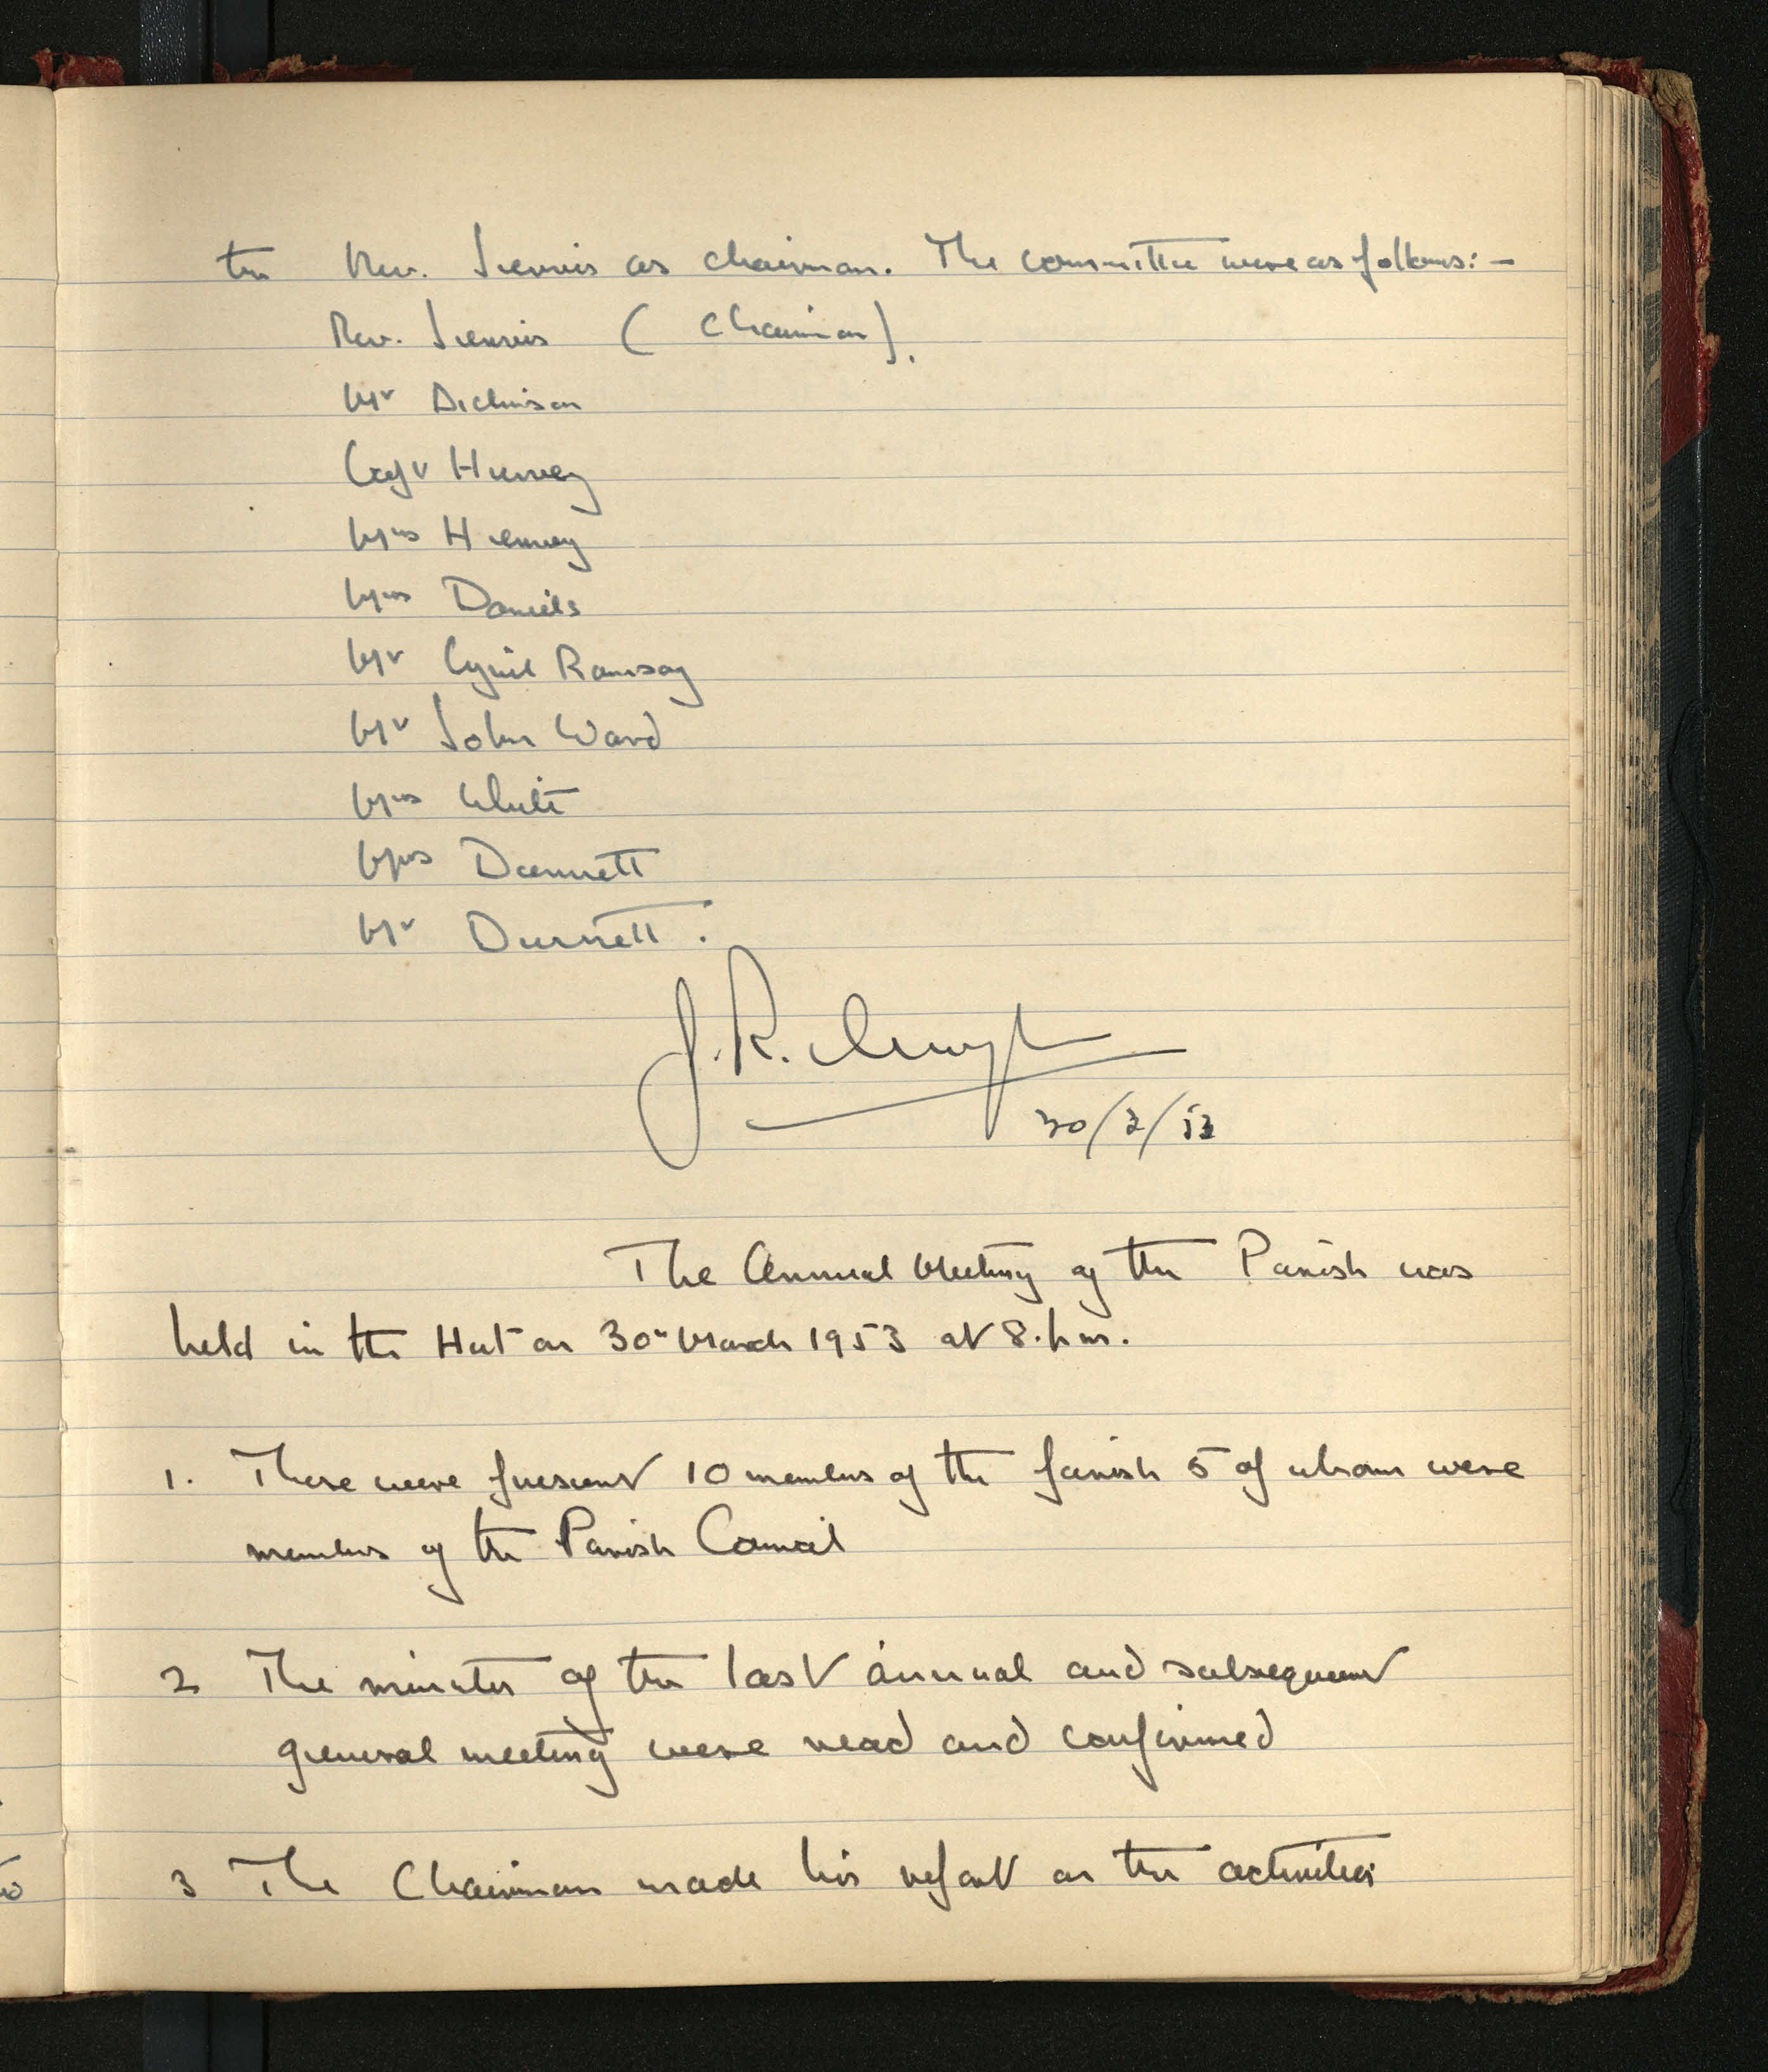 the Rev. Jervis as chairman. The committee were as follows:-
Rev. Jervis (Chairman).
Mr Dickinson
Capt Harvey
Mrs Harvey
Mrs Daniels
Mr Cyril Ramsay
Mr John Ward
Mrs White
Mrs Dannett
Mr Durrett.
J.R.
30/3/53
The Annual Meeting of the Parish was
held in the Hut on 30th March 1953 at 8.pm.
1. There were present 10 members of the parish 5 of whom were
members of the Parish Council
2 The minutes of the last annual and subsequent
general meeting were read and confirmed
3 The Chairman made his report on the activities